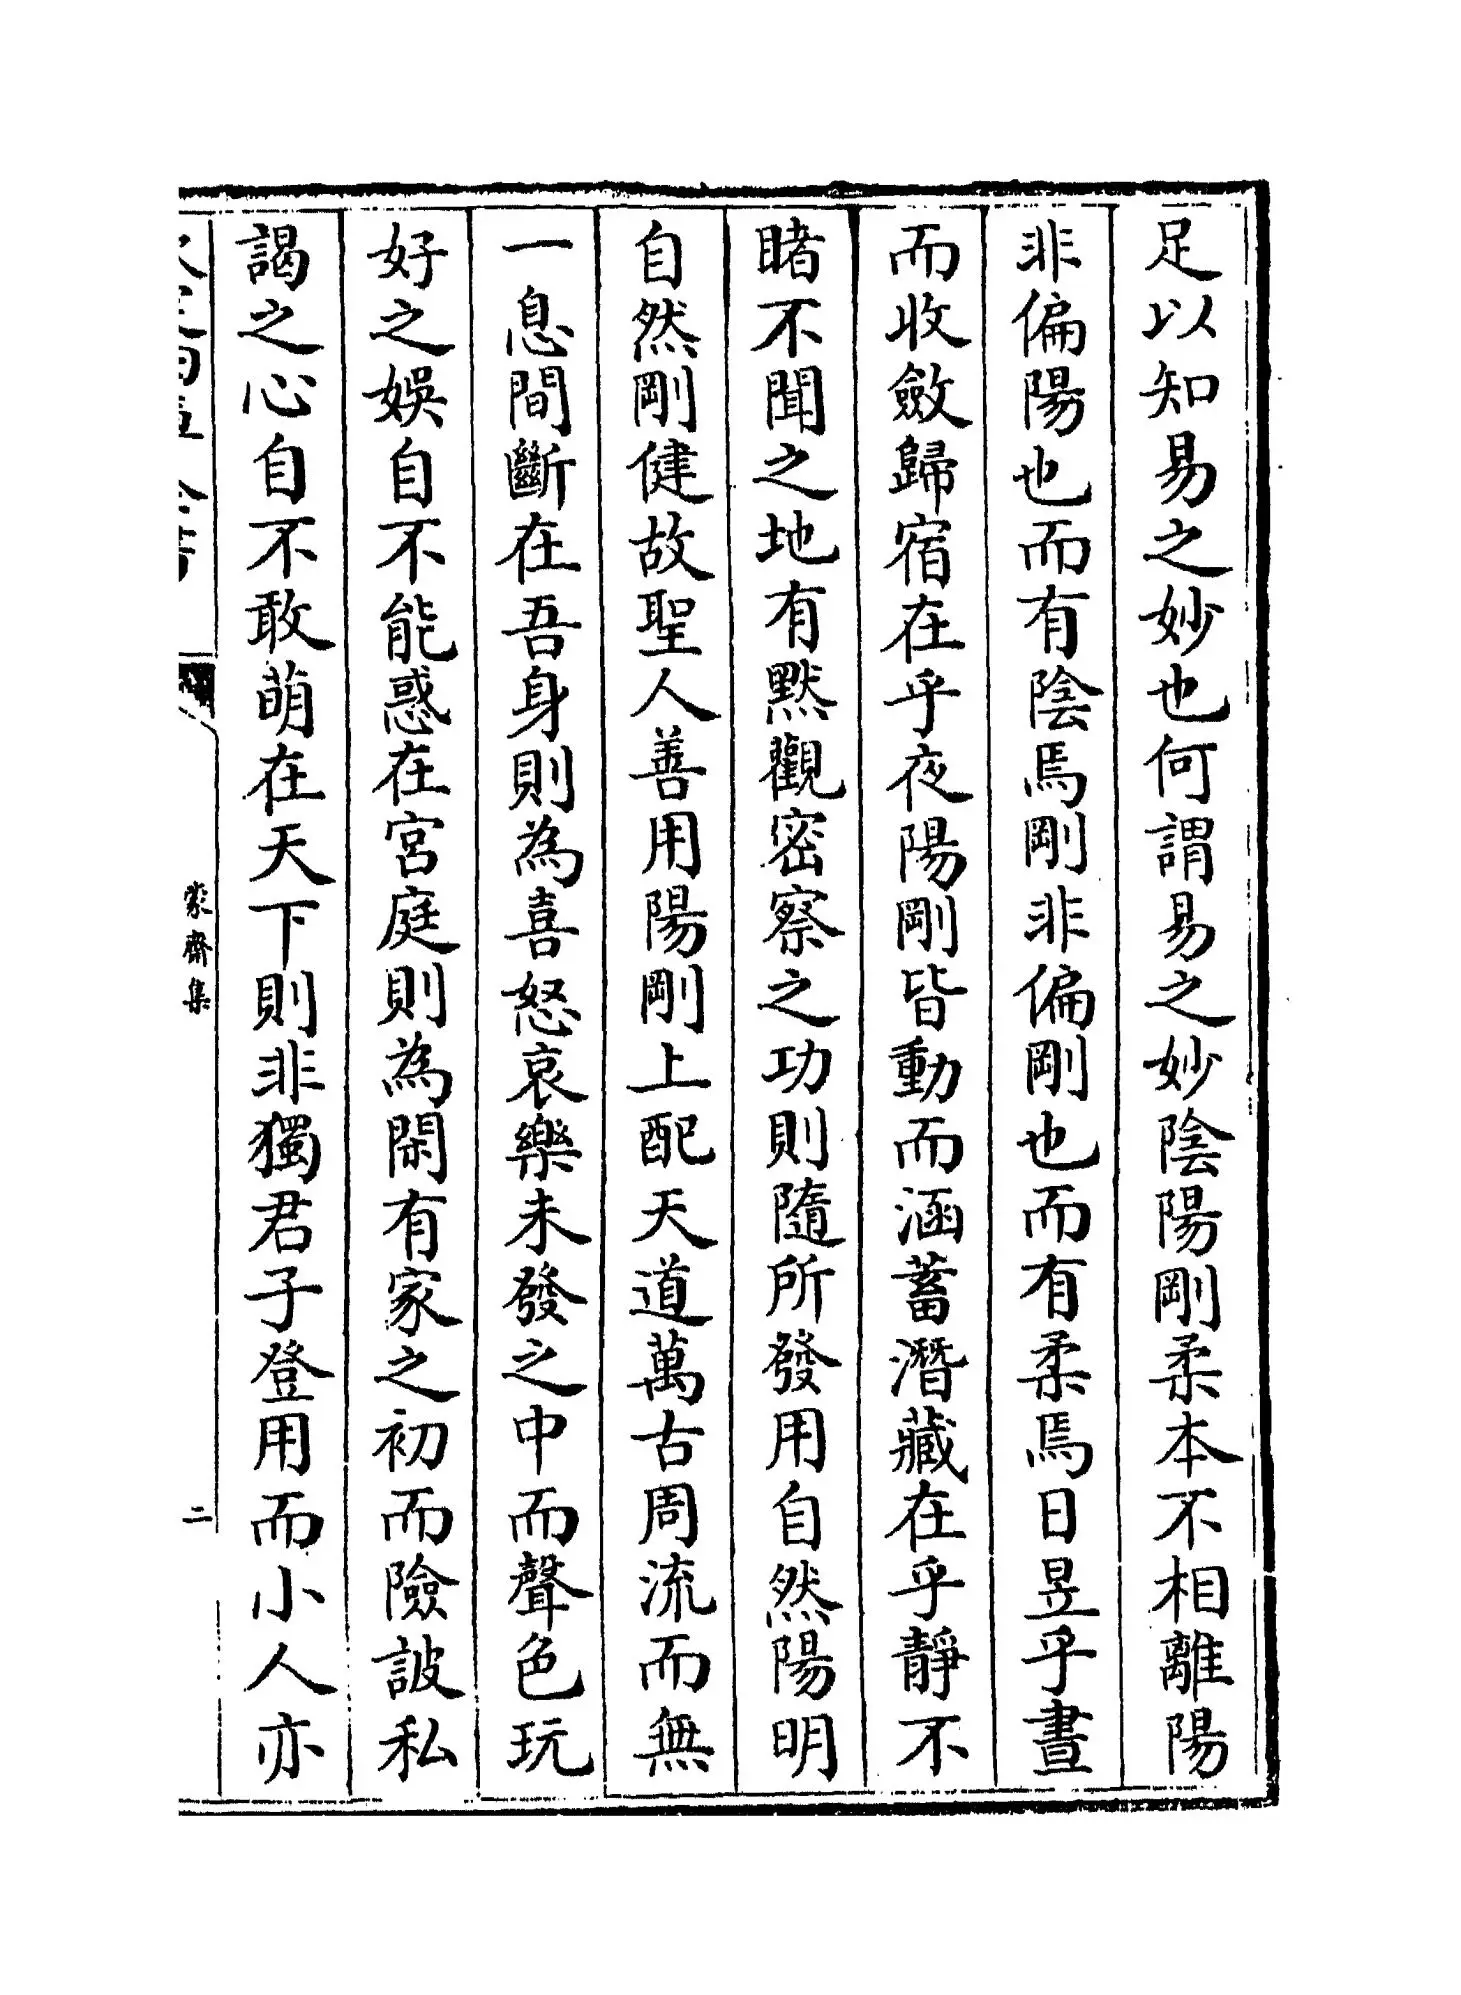 足以知易之妙也何謂易之妙陰陽剛柔本不相離陽
非偏陽也而有陰焉剛非偏剛也而有柔焉日昱乎晝
而收斂歸宿在乎夜陽剛皆動而涵蓄潛藏在乎靜不
睹不聞之地有黙觀密察之功則隨所發用自然陽明
自然剛健故聖人善用陽剛上配天道萬古周流而無
一息間斷在吾身則為喜怒哀樂未發之中而聲色玩
好之娛自不能惑在宮庭則為閑有家之初而險詖私
謁之心自不敢萌在天下則非獨君子登用而小人亦
蒙齋集
二